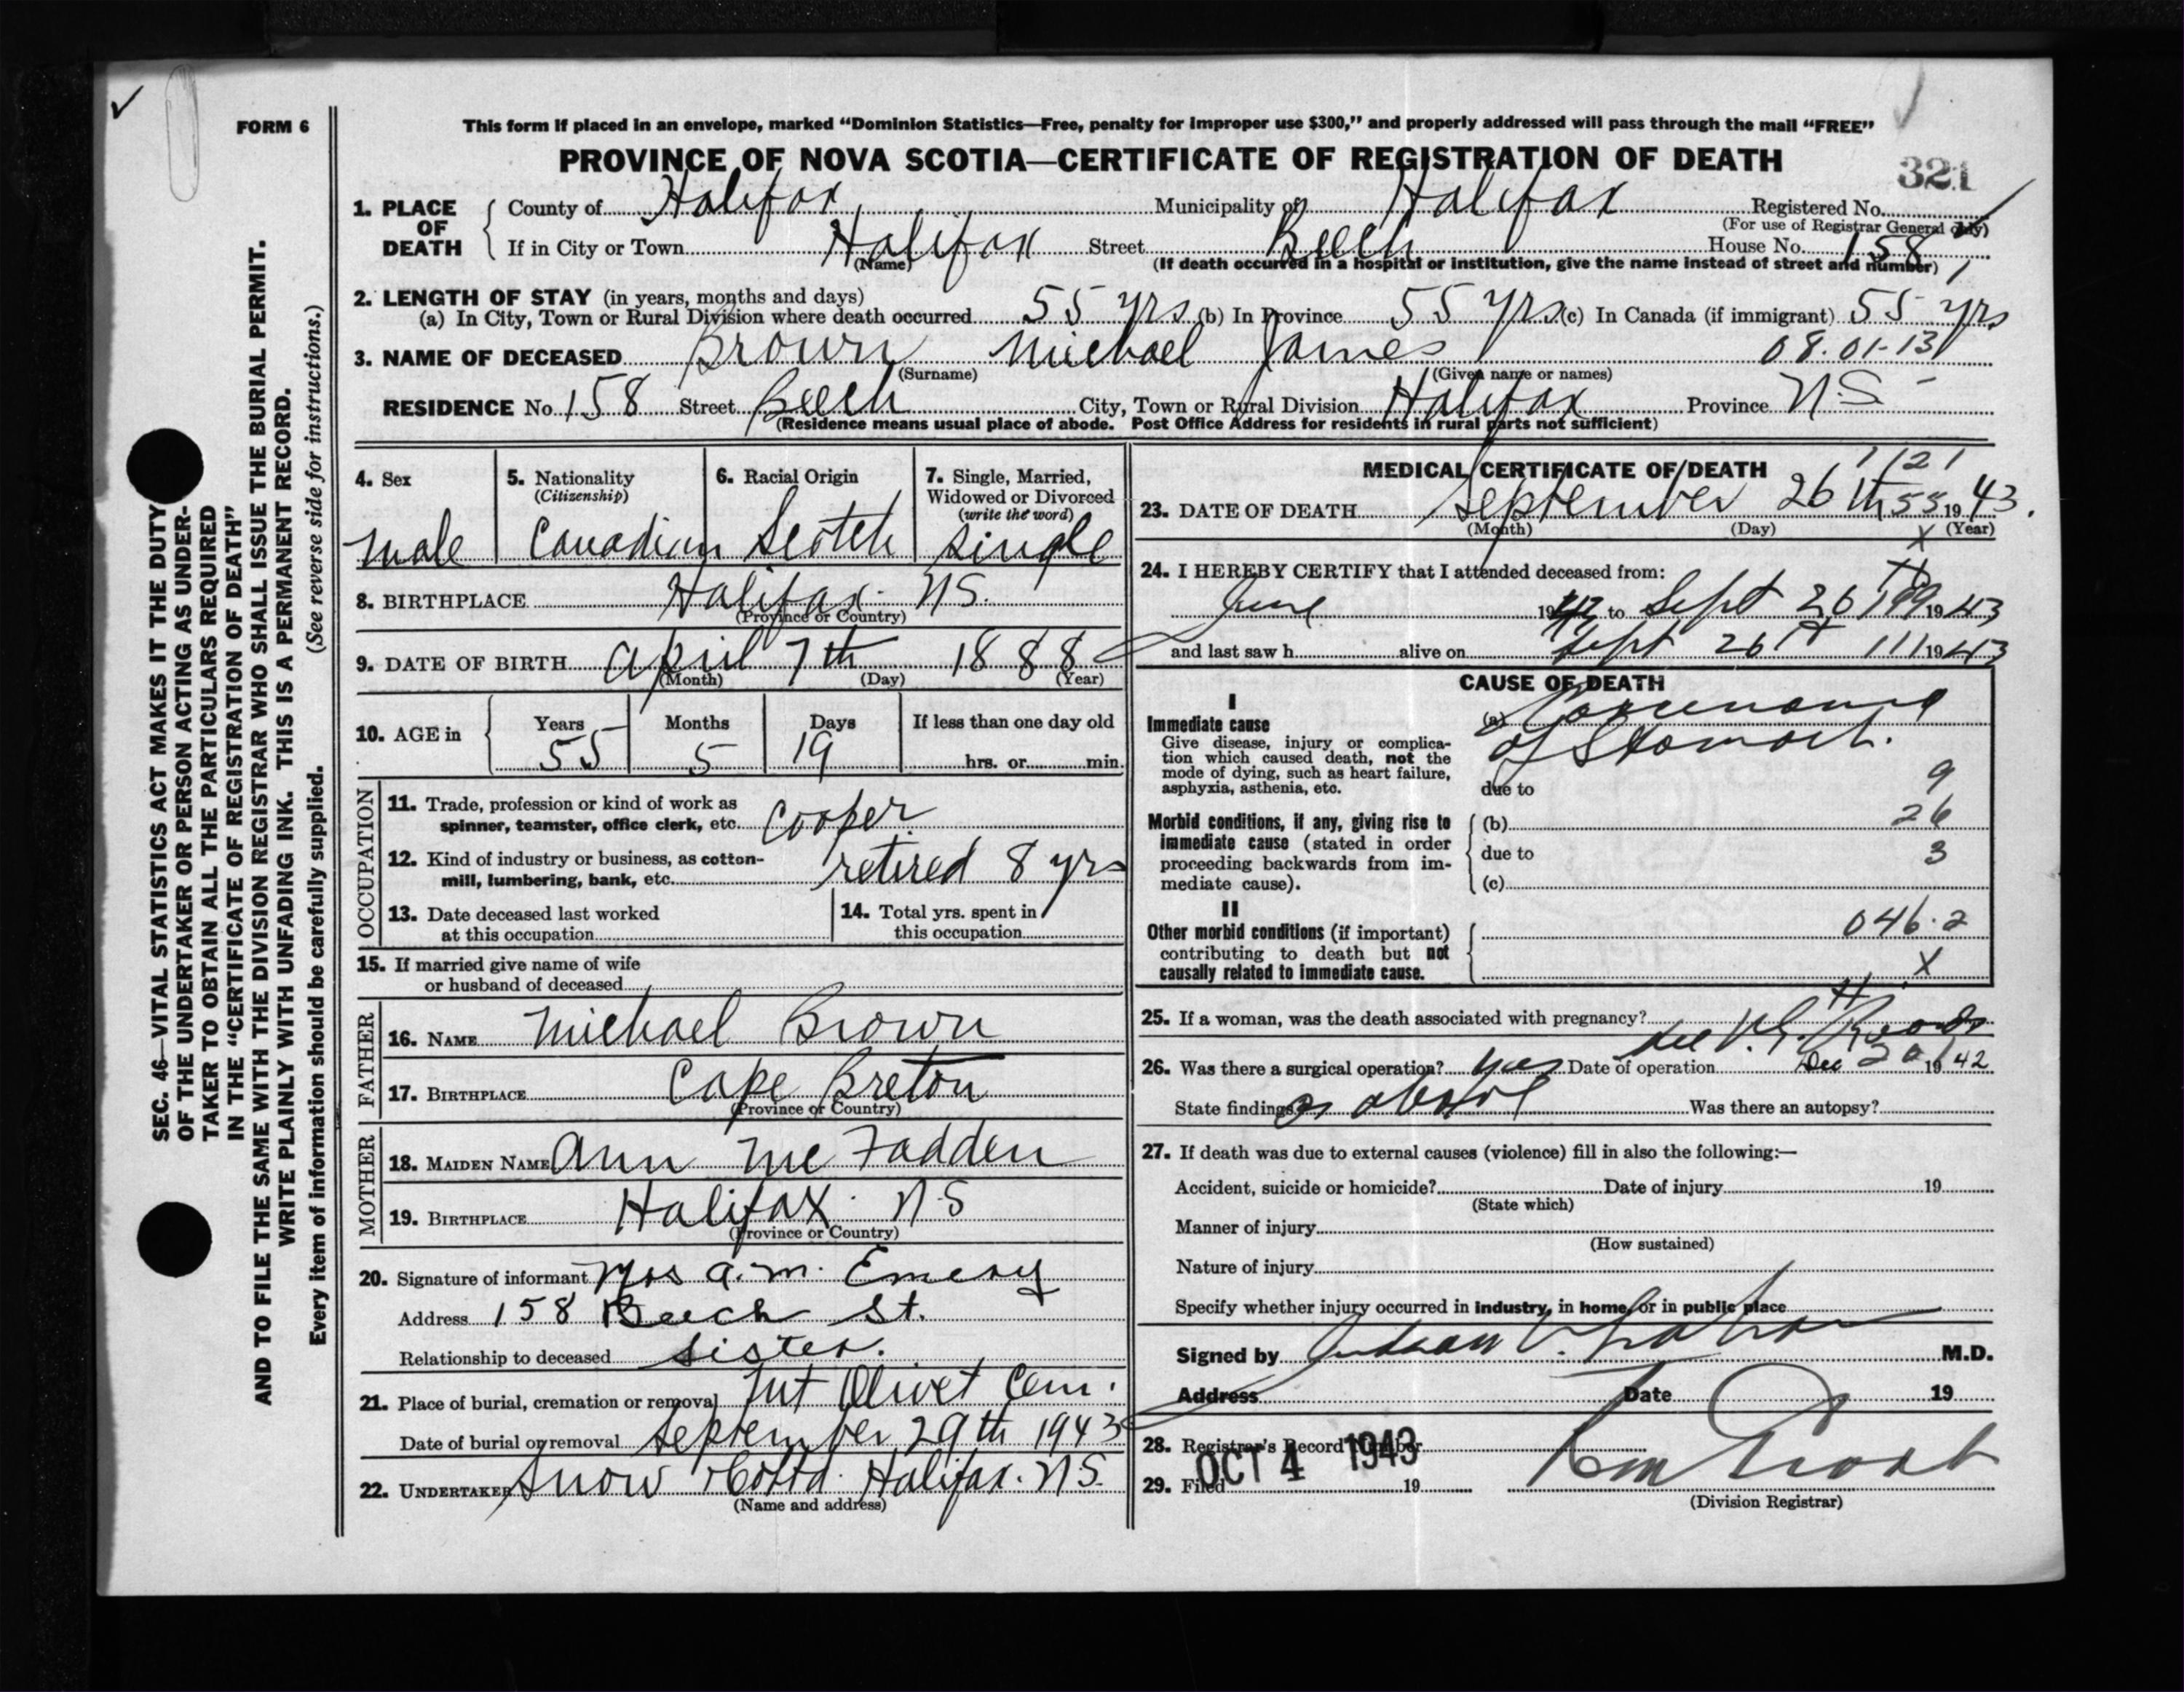 FORM 6
This form if placed in an envelope, marked “Dominion Statistics—Free, penalty for improper use $300,” and properly addressed will pass through the mail “FREE”
PROVINCE OF NOVA SCOTIA—CERTIFICATE OF REGISTRATION OF DEATH
321
1. PLACE OF DEATH
County of Halifax Municipality of Halifax Registered No.
(For use of Registrar General only)
If in City or Town Halifax Street Beech House No. 158
(Name) (If death occurred in a hospital or institution, give the name instead of street and number)
2. LENGTH OF STAY (in years, months and days)
(a) In City, Town or Rural Division where death occurred 55 yrs (b) In Province 55 yrs (c) In Canada (if immigrant) 55 yrs
3. NAME OF DECEASED Brown Michael James 08.01-13
(Surname) (Given name or names)
RESIDENCE No. 158 Street Beech City, Town or Rural Division Halifax Province N.S.
(Residence means usual place of abode. Post Office Address for residents in rural parts not sufficient)
4. Sex
male
5. Nationality
(Citizenship)
Canadian
6. Racial Origin
Scotch
7. Single, Married,
Widowed or Divorced
(write the word)
Single
8. BIRTHPLACE Halifax. N.S.
(Province or Country)
9. DATE OF BIRTH April 7th 1888
(Month) (Day) (Year)
10. AGE in
Years Months Days If less than one day old
55 5 19 hrs. or min.
OCCUPATION
11. Trade, profession or kind of work as
spinner, teamster, office clerk, etc. Cooper
12. Kind of industry or business, as cotton-
mill, lumbering, bank, etc. retired 8 yrs
13. Date deceased last worked
at this occupation
14. Total yrs. spent in
this occupation
15. If married give name of wife
or husband of deceased
FATHER
16. NAME Michael Brown
17. BIRTHPLACE Cape Breton
(Province or Country)
MOTHER
18. MAIDEN NAME Ann McFadden
19. BIRTHPLACE Halifax. N.S
(Province or Country)
20. Signature of informant Mrs A.M. Emery
Address 158 Beech St.
Relationship to deceased Sister.
21. Place of burial, cremation or removal Mt Olivet Cem.
Date of burial or removal September 29th 1943
22. UNDERTAKER Snow & Co Ltd. Halifax. N.S.
(Name and address)
MEDICAL CERTIFICATE OF DEATH
23. DATE OF DEATH September 26th 1943.
(Month) (Day) (Year)
24. I HEREBY CERTIFY that I attended deceased from:
June 1942 to Sept 26th 1943
and last saw h alive on Sept 26th 1943
CAUSE OF DEATH
I
Immediate cause
Give disease, injury or complica-
tion which caused death, not the
mode of dying, such as heart failure,
asphyxia, asthenia, etc.
(a) Carcinoma
of Stomach.
due to 9
Morbid conditions, if any, giving rise to
immediate cause (stated in order
proceeding backwards from im-
mediate cause).
(b) 26
due to 3
(c)
II
Other morbid conditions (if important)
contributing to death but not
causally related to immediate cause.
046.2
X
25. If a woman, was the death associated with pregnancy?
26. Was there a surgical operation? yes Date of operation Dec 1942
State findings as above Was there an autopsy?
27. If death was due to external causes (violence) fill in also the following:—
Accident, suicide or homicide? Date of injury 19
(State which)
Manner of injury
(How sustained)
Nature of injury
Specify whether injury occurred in industry, in home, or in public place
Signed by M.D.
Address Date 19
28. Registrar's Record Number
OCT 4 1943
29. Filed 19
(Division Registrar)
SEC. 46—VITAL STATISTICS ACT MAKES IT THE DUTY
OF THE UNDERTAKER OR PERSON ACTING AS UNDER-
TAKER TO OBTAIN ALL THE PARTICULARS REQUIRED
IN THE “CERTIFICATE OF REGISTRATION OF DEATH”
AND TO FILE THE SAME WITH THE DIVISION REGISTRAR WHO SHALL ISSUE THE BURIAL PERMIT.
WRITE PLAINLY WITH UNFADING INK. THIS IS A PERMANENT RECORD.
Every item of information should be carefully supplied. (See reverse side for instructions.)